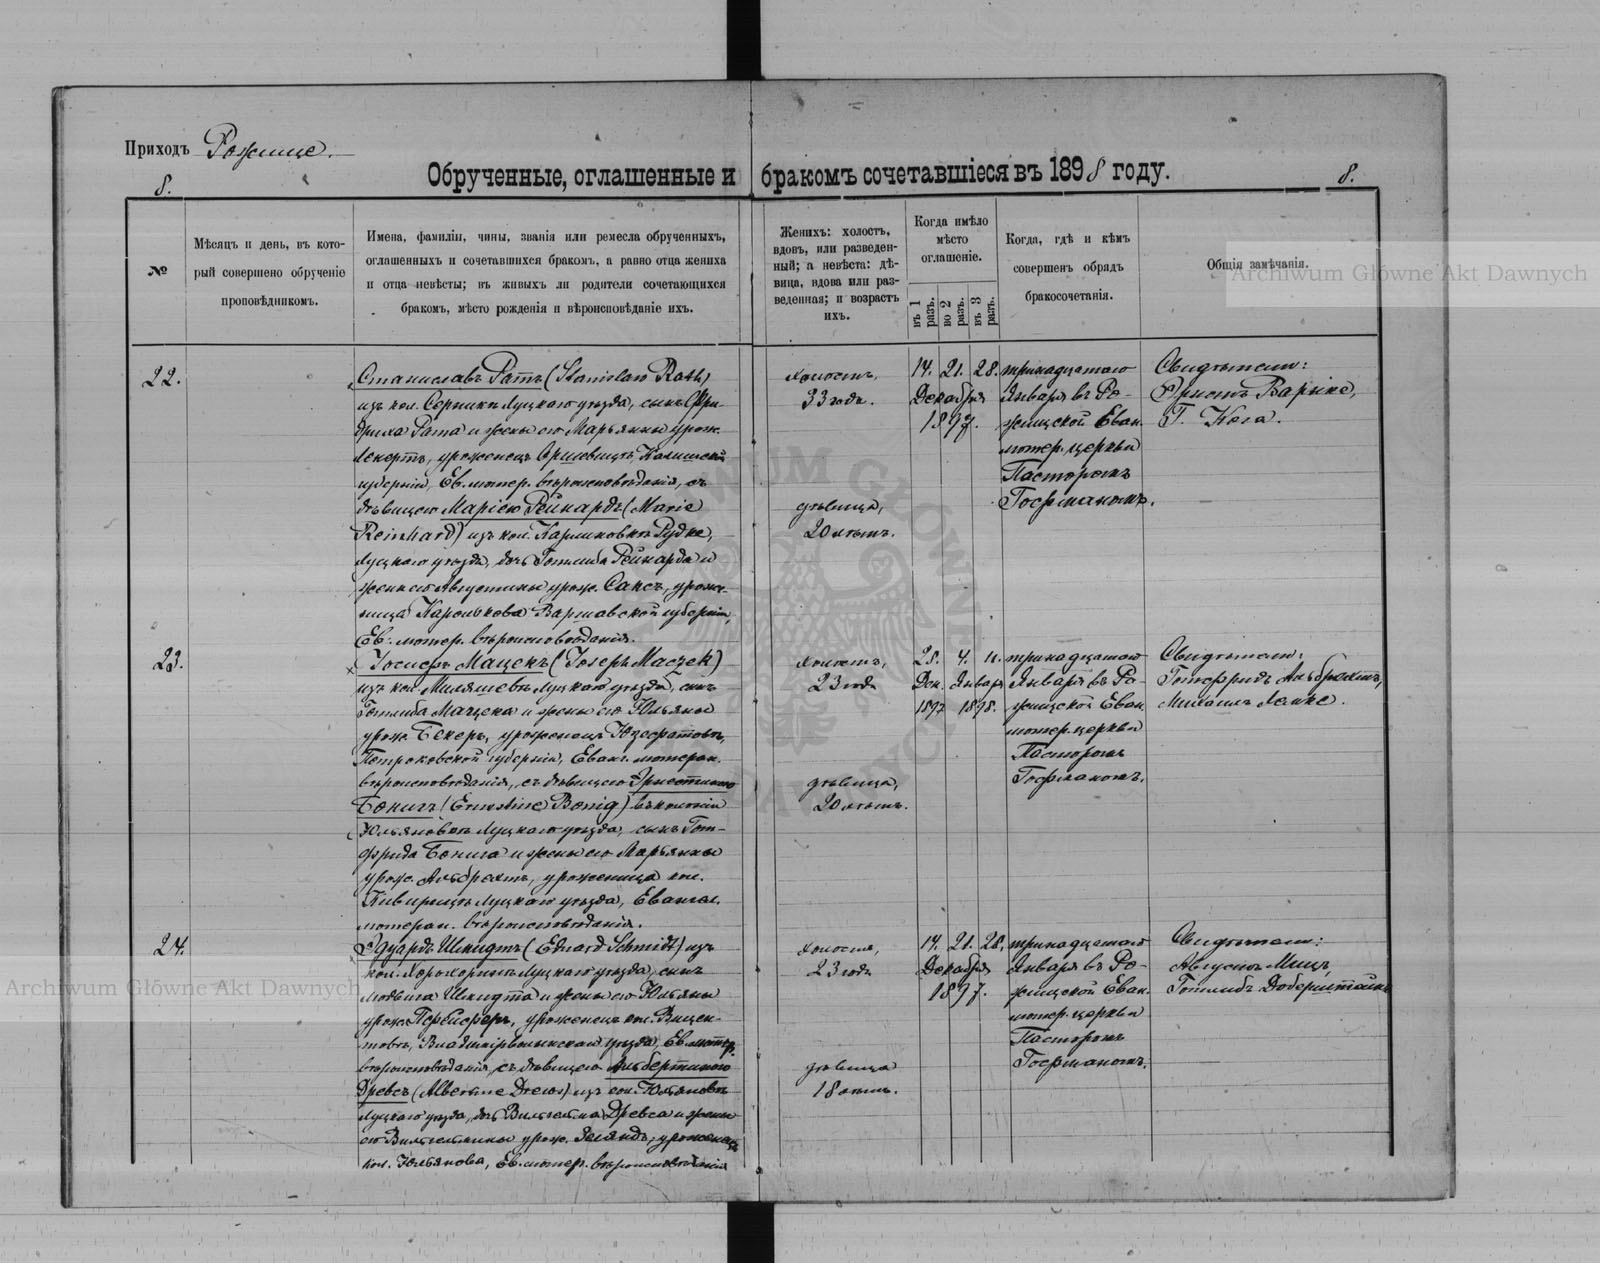 Приходъ Рожище.
8.
Обрученные, оглашенные и бракомъ сочетавшіеся въ 1898 году.
8.
№
Мѣсяцъ и день, въ кото-
рый совершено обрученіе
проповѣдникомъ.
Имена, фамиліи, чины, званія или ремесла обрученныхъ,
оглашенныхъ и сочетавшихся бракомъ, а равно отца жениха
и отца невѣсты; въ живыхъ ли родители сочетающихся
бракомъ, мѣсто рожденія и вѣроисповѣданіе ихъ.
Женихъ: холостъ,
вдовъ, или разведен-
ный; а невѣста: дѣ-
вица, вдова или раз-
веденная; и возрастъ
ихъ.
Когда имѣло
мѣсто
оглашеніе.
въ 1
разъ.
во 2
разъ.
въ 3
разъ.
Когда, гдѣ и кѣмъ
совершенъ обрядъ
бракосочетанія.
Общія замѣчанія.
Archiwum Główne Akt Dawnych
22.
Станиславъ Ратъ (Stanislaw Rath)
изъ кол. Серники Луцкаго уѣзда, сынъ Фри-
дриха Рата и жены его Марьянны урож.
уроженецъ Калишской
губерніи, Ев. лютер. вѣроисповѣданія, съ
дѣвицею Маріею Рейнардъ (Marie
Reinhard) изъ кол.
Луцкаго уѣзда, дочь Готлиба Рейнарда и
жены его Августины урож. Саксъ, уроже-
ница Варшавской губерніи,
Ев. лютер. вѣроисповѣданія.
холостъ,
33 года.
дѣвица,
20 лѣтъ.
14. 21. 28.
Декабря
1897.
тринадцатого
Января въ Ро-
жищской Еван.
лютер. церкви
Пасторомъ
Госфманомъ.
Свидѣтели:
Эрнстъ Варнке,
Г. Кога.
23.
Іосифъ Мацекъ (Joseph Maczek)
изъ кол. Миляшевъ Луцкаго уѣзда, сынъ
Готлиба Мацека и жены его Юльяны
урож. Бекеръ, уроженецъ
Петроковской губерніи, Еванг. лютеран.
вѣроисповѣданія, съ дѣвицею Эрнестиною
Бонигъ (Ernestine Bonig) въ колоніи
Юльяновкѣ Луцкаго уѣзда, сынъ Гот-
фрида Бонига и жены его Марьянны
урож. Альбрехтъ, уроженица кол.
Луцкаго уѣзда, Евангел.
лютеран. вѣроисповѣданія.
холостъ,
23 года
дѣвица,
20 лѣтъ.
28. 4. 11.
Дек. Января
1897 1898.
тринадцатого
Января въ Ро-
жищской Еван.
лютер. церкви
Пасторомъ
Госфманомъ.
Свидѣтели:
Готфридъ Альбрехтъ,
Михаилъ Лемке.
24.
Эдуардъ Шмидтъ (Eduard Schmidt) изъ
кол. Хорохоринъ Луцкаго уѣзда, сынъ
Людвига Шмидта и жены его Юльяны
урож. Пфейферъ, уроженецъ кол. Вицен-
товъ, Владимірволынскаго уѣзда, Ев. лютер.
вѣроисповѣданія, съ дѣвицею Альбертиною
Древсъ (Albertine Drews) изъ кол. Юльяновъ
Луцкаго уѣзда, дочь Вильгельма Древса и жены
его Вильгельмины урож. уроженица
кол. Юльянова, Ев. лютер. вѣроисповѣданія
холостъ,
23 года
дѣвица
18 лѣтъ.
14. 21. 28.
Декабря
1897.
тринадцатого
Января въ Ро-
жищской Еван.
лютер. церкви
Пасторомъ
Госфманомъ.
Свидѣтели:
Августъ Мицъ,
Готлибъ Доберштайнъ
Archiwum Główne Akt Dawnych
ARCHIWUM GŁÓWNE AKT DAWNYCH